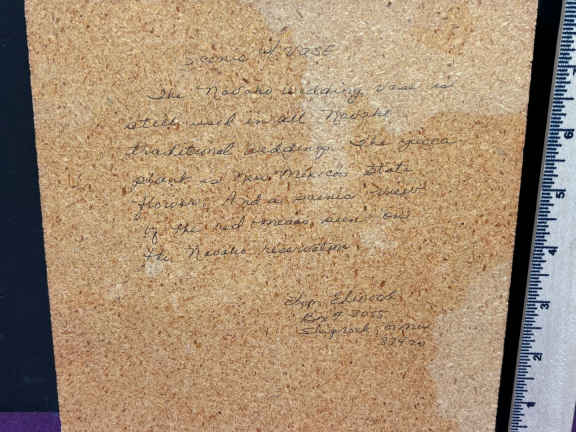 Scenic W/ Vase
The Navaho wedding vase is
still used in all Navaho
traditional weddings. The yucca
plant is New Mexico's State
flower. And a scenic view
of the red mesas seen on
the Navaho reservation
Box
Shiprock, N. Mex
87420
6
5
4
3
2
1